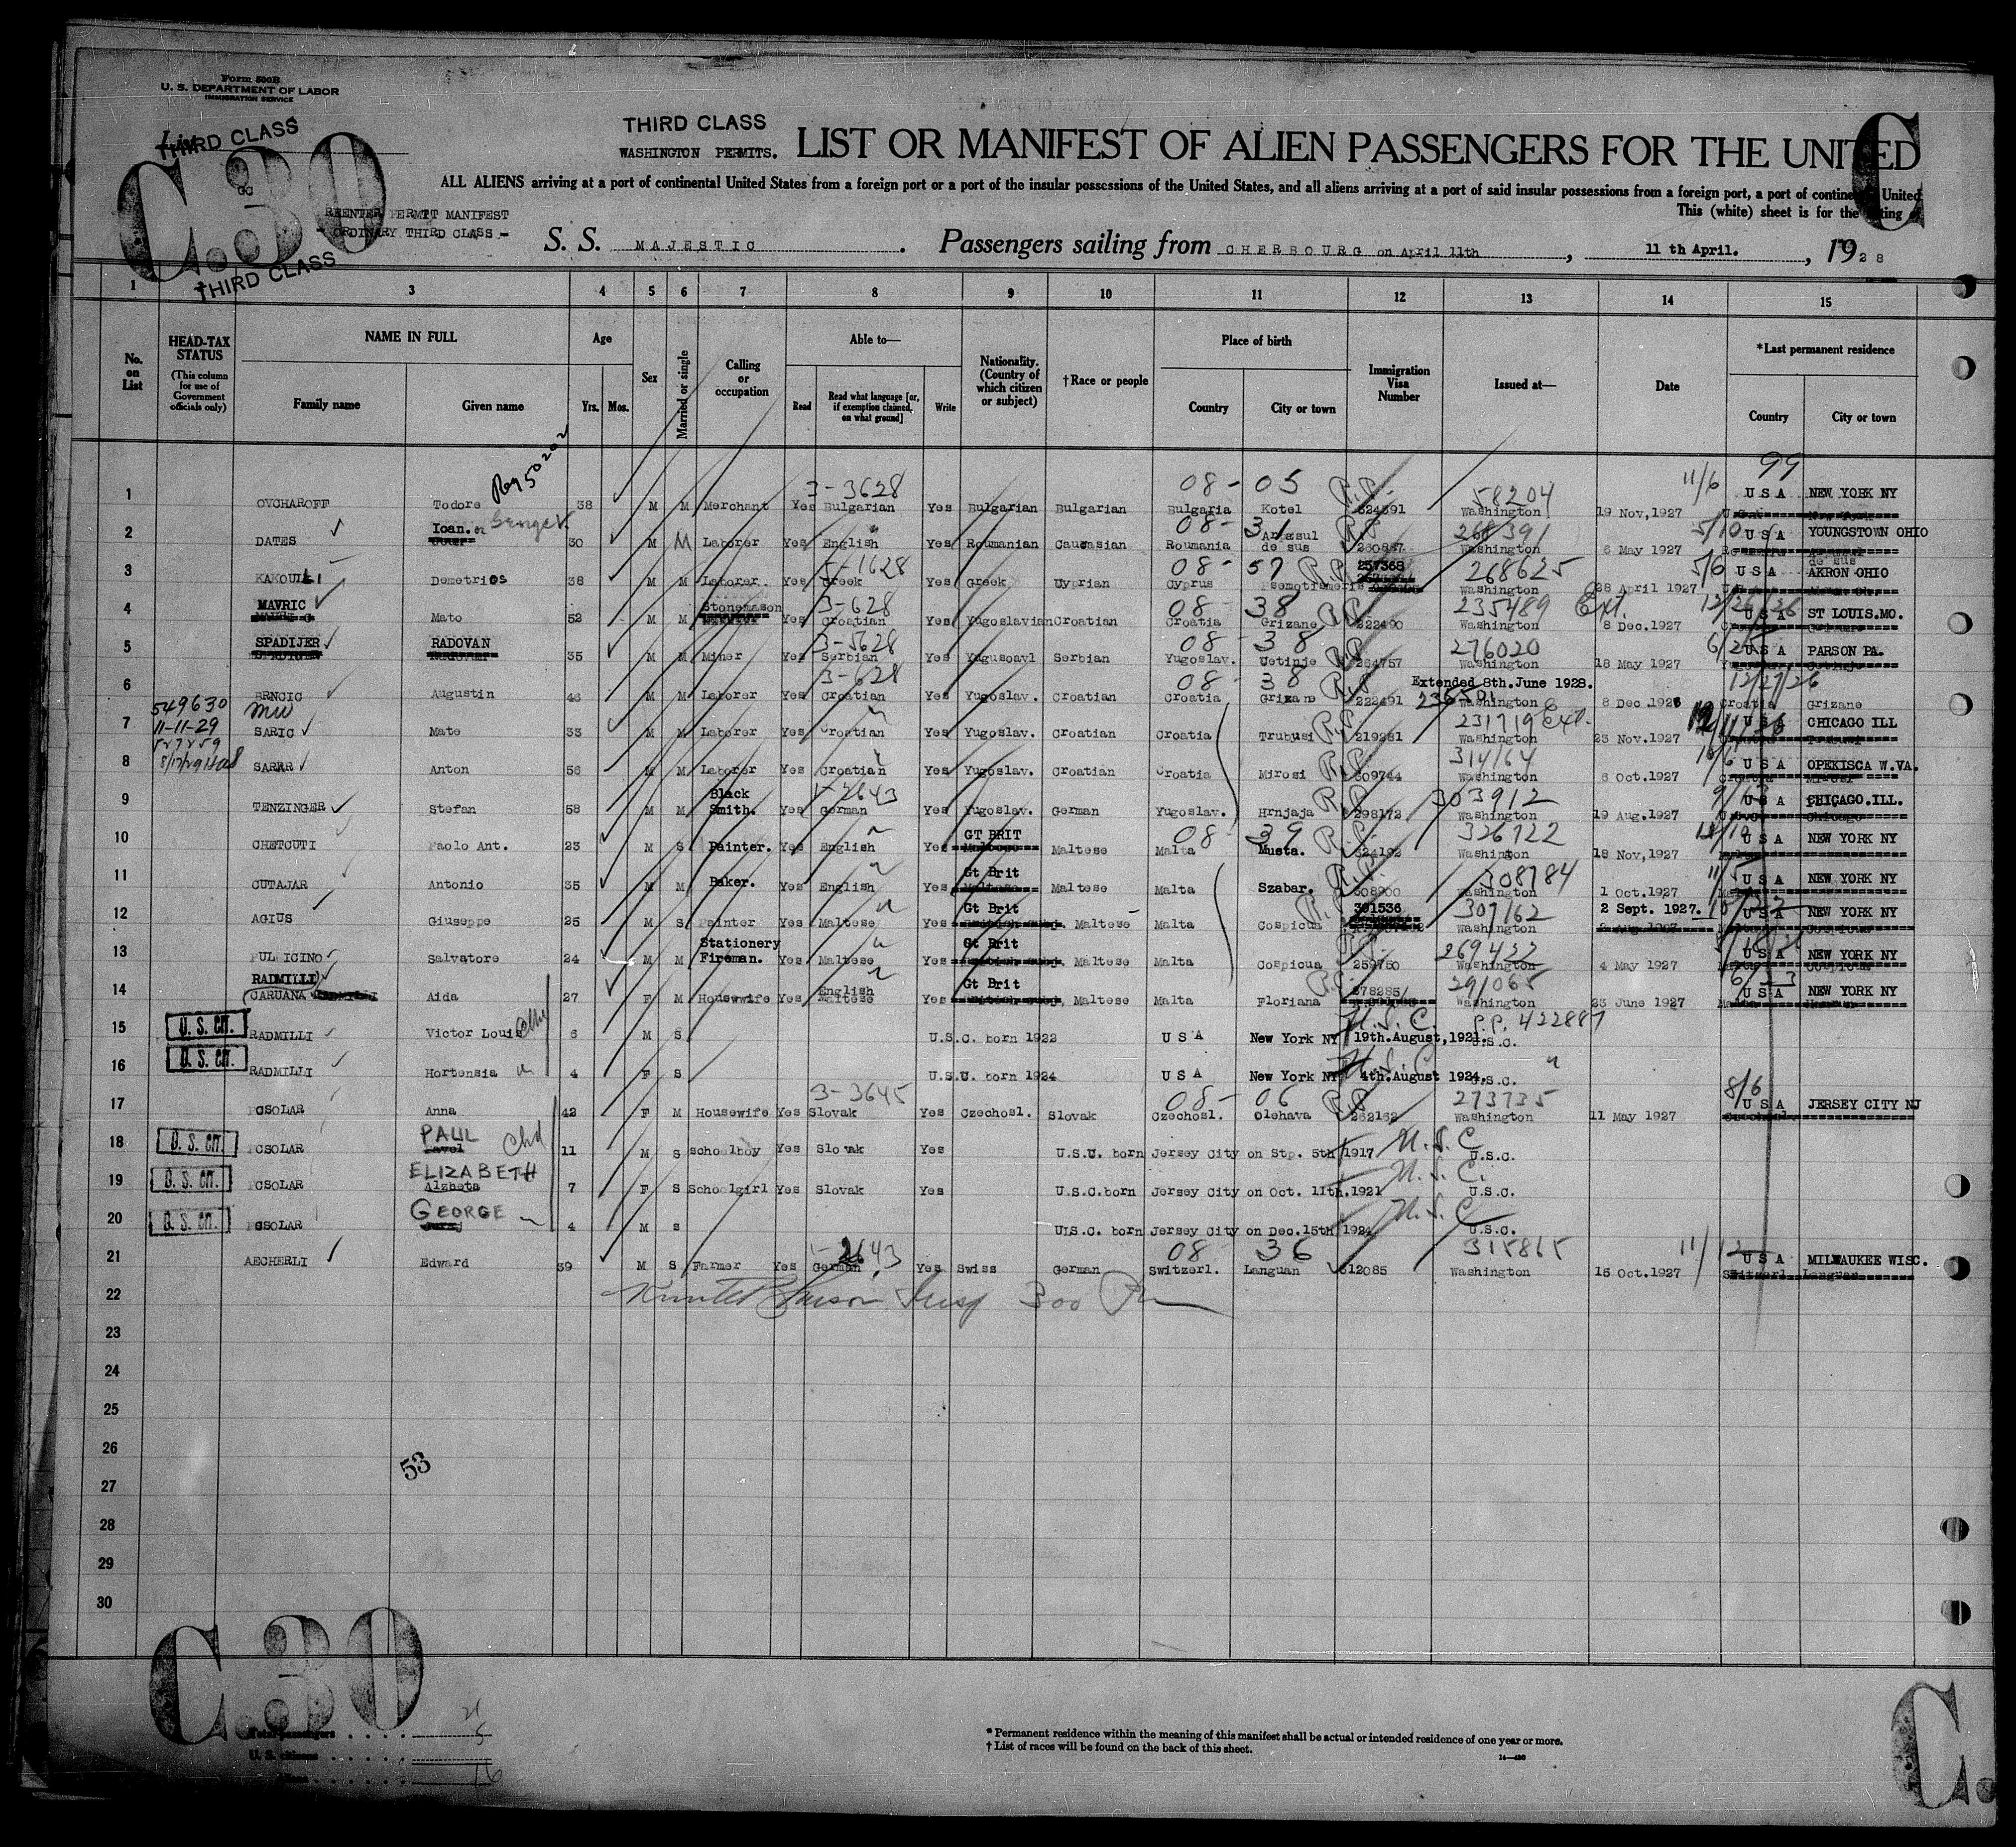 Form 500B
U. S. DEPARTMENT OF LABOR
IMMIGRATION SERVICE
THIRD CLASS
C.30
THIRD CLASS
WASHINGTON PERMITS.
LIST OR MANIFEST OF ALIEN PASSENGERS FOR THE UNITED
C
ALL ALIENS arriving at a port of continental United States from a foreign port or a port of the insular possessions of the United States, and all aliens arriving at a port of said insular possessions from a foreign port, a port of United
This (white) sheet is for the
REENTER PERMIT MANIFEST
ORDINARY THIRD CLASS.-
THIRD CLASS
S. S. MAJESTIC. Passengers sailing from CHERBOURG on April 11th, 11 th April., 1928
1 3 4 5 6 7 8 9 10 11 12 13 14 15
No. on List
HEAD-TAX STATUS (This column for use of Government officials only)
NAME IN FULL
Family name
Given name
Age
Yrs. Mos.
Sex
Married or single
Calling or occupation
Able to—
Read
Read what language [or, if exemption claimed, on what ground]
Write
Nationality. (Country of which citizen or subject)
†Race or people
Place of birth
Country
City or town
Immigration Visa Number
Issued at—
Date
*Last permanent residence
Country
City or town
Reg 50202
3-3628 08- 05 58204 11/6 99
1 OVCHAROFF Todore 38 M M Merchant Yes Bulgarian Yes Bulgarian Bulgarian Bulgaria Kotel Washington 19 Nov,1927 USA NEW YORK NY
2 DATES Ioan. or George 30 M M Laborer Yes English Yes Roumanian Caucasian Roumania 08- 31 de sus 268391 Washington 6 May 1927 5/10 USA YOUNGSTOWN OHIO
3 KAKOULLI Demetrios 38 M M Laborer Yes Greek Yes Greek Cyprian Cyprus 08- 57 257368 268625 28 April 1927 5/6 USA AKRON OHIO
4 MAVRIC Mato 52 M M Stonemason Yes 3-628 Croatian Yes Yugoslavian Croatian 08- 38 Croatia Grizane 222490 235489 Ext. Washington 8 Dec.1927 12/26/26 USA ST LOUIS.MO.
5 SPADIJER RADOVAN 35 M M Miner Yes 3-5628 Serbian Yes Yugosoavl Serbian 08- 38 Yugoslav. Cetinje 264757 276020 Washington 18 May 1927 USA PARSON PA.
6 BRNCIC Augustin 46 M M Laborer Yes 3-628 Croatian Yes Yugoslav. Croatian 08- 38 Croatia Grizane 222491 Extended 8th.June 1928. Washington 8 Dec.1926 12/27/26 Croatia Grizane
549630
11-11-29
7 SARIC Mate 33 M M Laborer Yes Croatian Yes Yugoslav. Croatian Croatia Trubusi 219281 231719 Ext. Washington 23 Nov.1927 USA CHICAGO ILL
8 SARRR Anton 56 M M Laborer Yes Croatian Yes Yugoslav. Croatian Croatia Mirosi 309744 314164 Washington 6 Oct.1927 USA OPEKISCA W.VA.
9 TENZINGER Stefan 58 M M Black Smith. Yes 1-2643 German Yes Yugoslav. German Yugoslav. Hrnjaja 298172 303912 Washington 19 Aug.1927 USA CHICAGO.ILL.
10 CHETCUTI Paolo Ant. 23 M S Painter. Yes English Yes GT BRIT Maltese 08- 39 Malta Musta. 324192 326722 Washington 18 Nov,1927 USA NEW YORK NY
11 CUTAJAR Antonio 35 M M Baker. Yes English Yes Gt Brit Maltese Malta Szabar. 308784 Washington 1 Oct.1927 USA NEW YORK NY
12 AGIUS Giuseppe 25 M S Painter Yes Maltese Yes Gt Brit Maltese Malta Cospicua 301536 307162 Washington 2 Sept. 1927. USA NEW YORK NY
13 Salvatore 24 M M Stationery Fireman. Yes Maltese Yes Gt Brit Maltese Malta Cospicua 259750 269422 Washington 4 May 1927 USA NEW YORK NY
14 RADMILLI (CARUANA Aida 27 F M Housewife Yes English Maltese Yes Gt Brit Maltese Malta Floriana 291065 Washington 23 June 1927 USA NEW YORK NY
15 U. S. CIT. RADMILLI Victor Louis 6 M S U.S.C. born 1922 USA New York NY 19th.August,1921. U.S.C. P.P. 422887
16 U. S. CIT. RADMILLI Hortensia 4 F S U.S.C. born 1924 USA New York NY 4th.August 1924. U.S.C.
17 CSOLAR Anna 42 F M Housewife Yes 3-3645 Slovak Yes Czechosl. Slovak 08- 06 Czechosl. Olehava 262162 273735 Washington 11 May 1927 8/6 USA JERSEY CITY NJ
18 U. S. CIT. CSOLAR PAUL Pavel Chd 11 M S schoolboy Yes Slovak Yes U.S.C. born Jersey City on Stp. 5th 1917 U.S.C. U.S.C.
19 U. S. CIT. CSOLAR ELIZABETH Alzbeta 7 F S Schoolgirl Yes Slovak Yes U.S.C.born Jersey City on Oct. 11th.1921 U.S.C. U.S.C.
20 U. S. CIT. CSOLAR GEORGE 4 M S U.S.C. born Jersey City on Dec.15th 1924 U.S.C. U.S.C.
21 AECHERLI Edward 39 M S Farmer Yes 1-2643 German Yes Swiss German 08 36 Switzerl. Languan 312085 315865 Washington 15 Oct.1927 11/12 USA MILWAUKEE WISC.
22
23
24
25
26
53
27
28
29
30
C.30
Total passengers 21
U. S. citizens 5
16
* Permanent residence within the meaning of this manifest shall be actual or intended residence of one year or more.
† List of races will be found on the back of this sheet.
C.